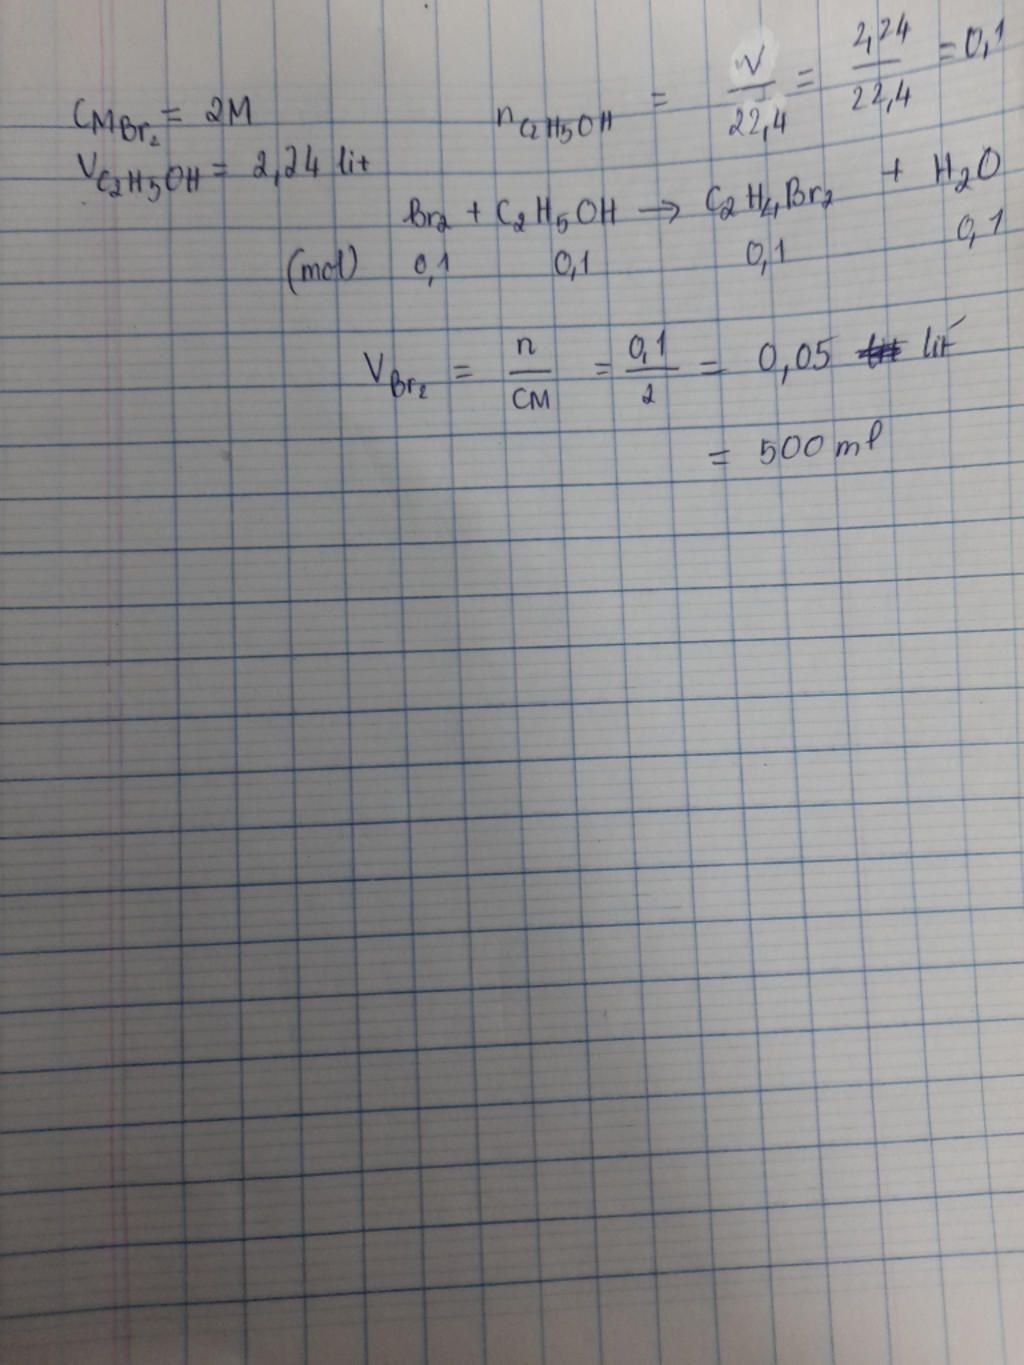 CM Br₂ = 2M
V C₂H₅OH = 2,24 lit
n C₂H₅OH = V/22,4 = 2,24/22,4 = 0,1
Br₂ + C₂H₅OH → C₂H₄Br₂ + H₂O
(mol) 0,1 0,1 0,1 0,1
V Br₂ = n/CM = 0,1/2 = 0,05 lít
= 500 ml